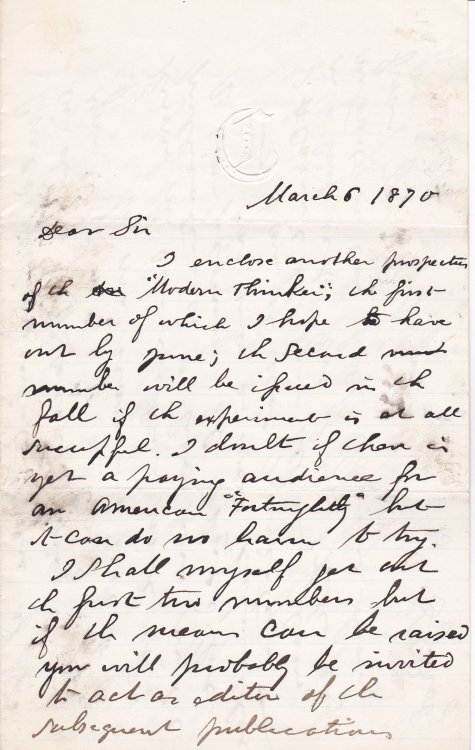 March 6 1870
Dear Sir
I enclose another prospectus
of th "Modern Thinker"; th first
number of which I hope to have
out by June; th second
number will be issued in th
fall if th experiment is at all
sucessful. I doubt if there is
yet a paying audience for
an American "Fortnightly" but
it can do no harm to try.
I shall myself get out
th first two numbers but
if th means can be raised
you will probably be invited
to act as editor of th
subsequent publications